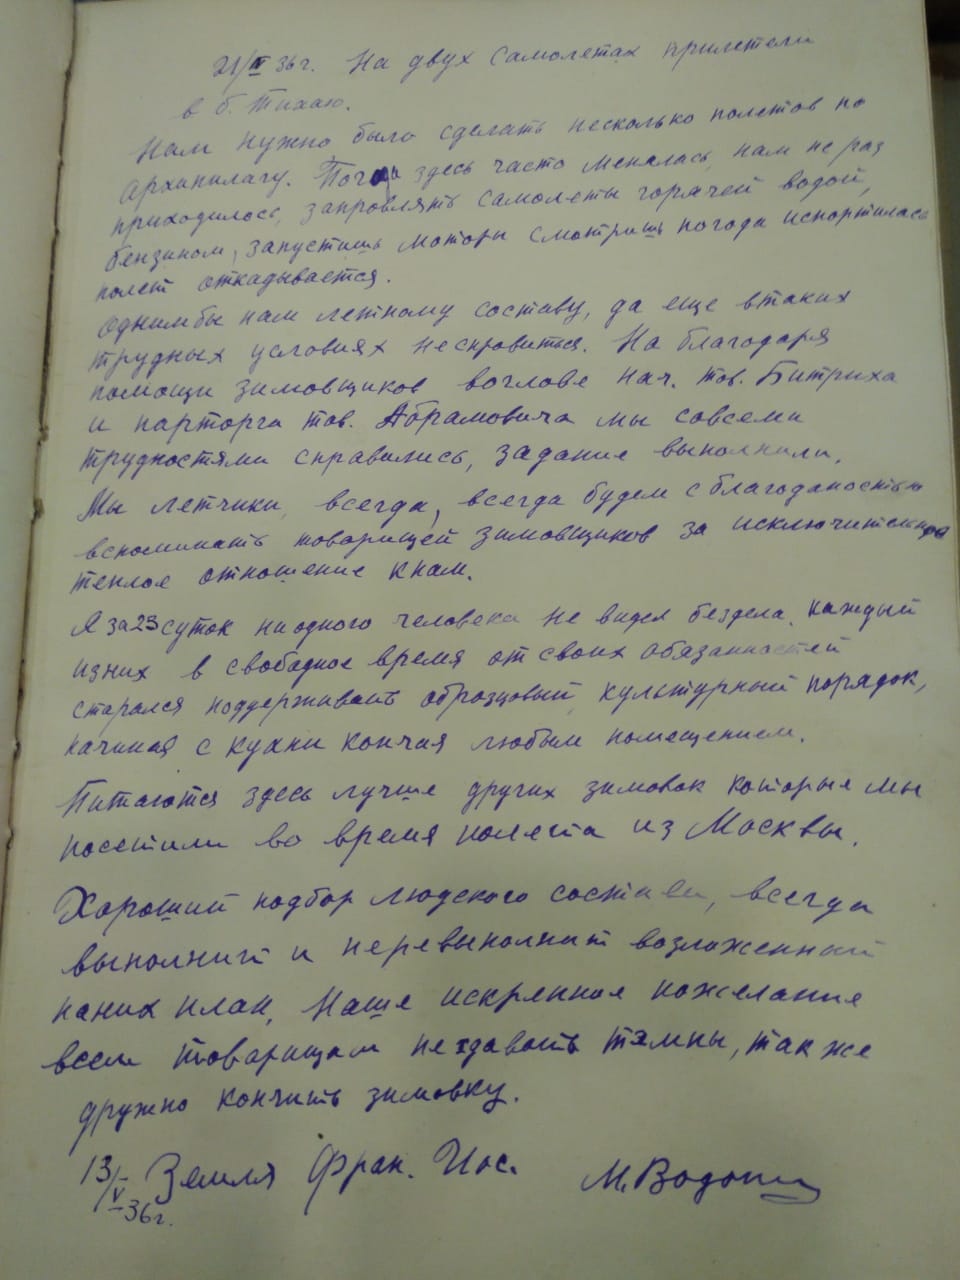 21/IV 36г. На двух самолетах прилетели
в б. Тихаю.
Нам нужно было сделать несколько полетов по
архипилагу. Погода здесь часто менялась, нам не раз
приходилось, заправлять самолеты горячей водой,
бензином, запустишь моторы смотришь погода испортилась
полет откадывается.
Однимбы нам летному составу, да еще втаких
трудных условиях несправится. На благодаря
помощи зимовщиков воглове нач. тов. Битриха
и парторга тов. Абрамовича мы совсеми
трудностями справились, задание выполнили.
Мы летчики, всегда, всегда будем с благоданостью
вспоминать товарищей зимовщиков за исключительное
теплое отношение кнам.
Я за 23 суток ниодного человека не видел бездела. каждый
изних в свободное время от своих обязанностей
старался поддерживать образцовый, культурный порядок,
начиная с кухни кончая любым помещением.
Питаются здесь лучше других зимовок которые мы
посетили во время полета из Москвы.
Хороший подбор людского состава, всегда
выполнит и перевыполнит возложенный
наних план. Наше искренное пожелание
всем товарищам нездавать тэмпы, так же
дружно кончить зимовку.
13/V 36г. Земля Фран. Иос. М. Водоп